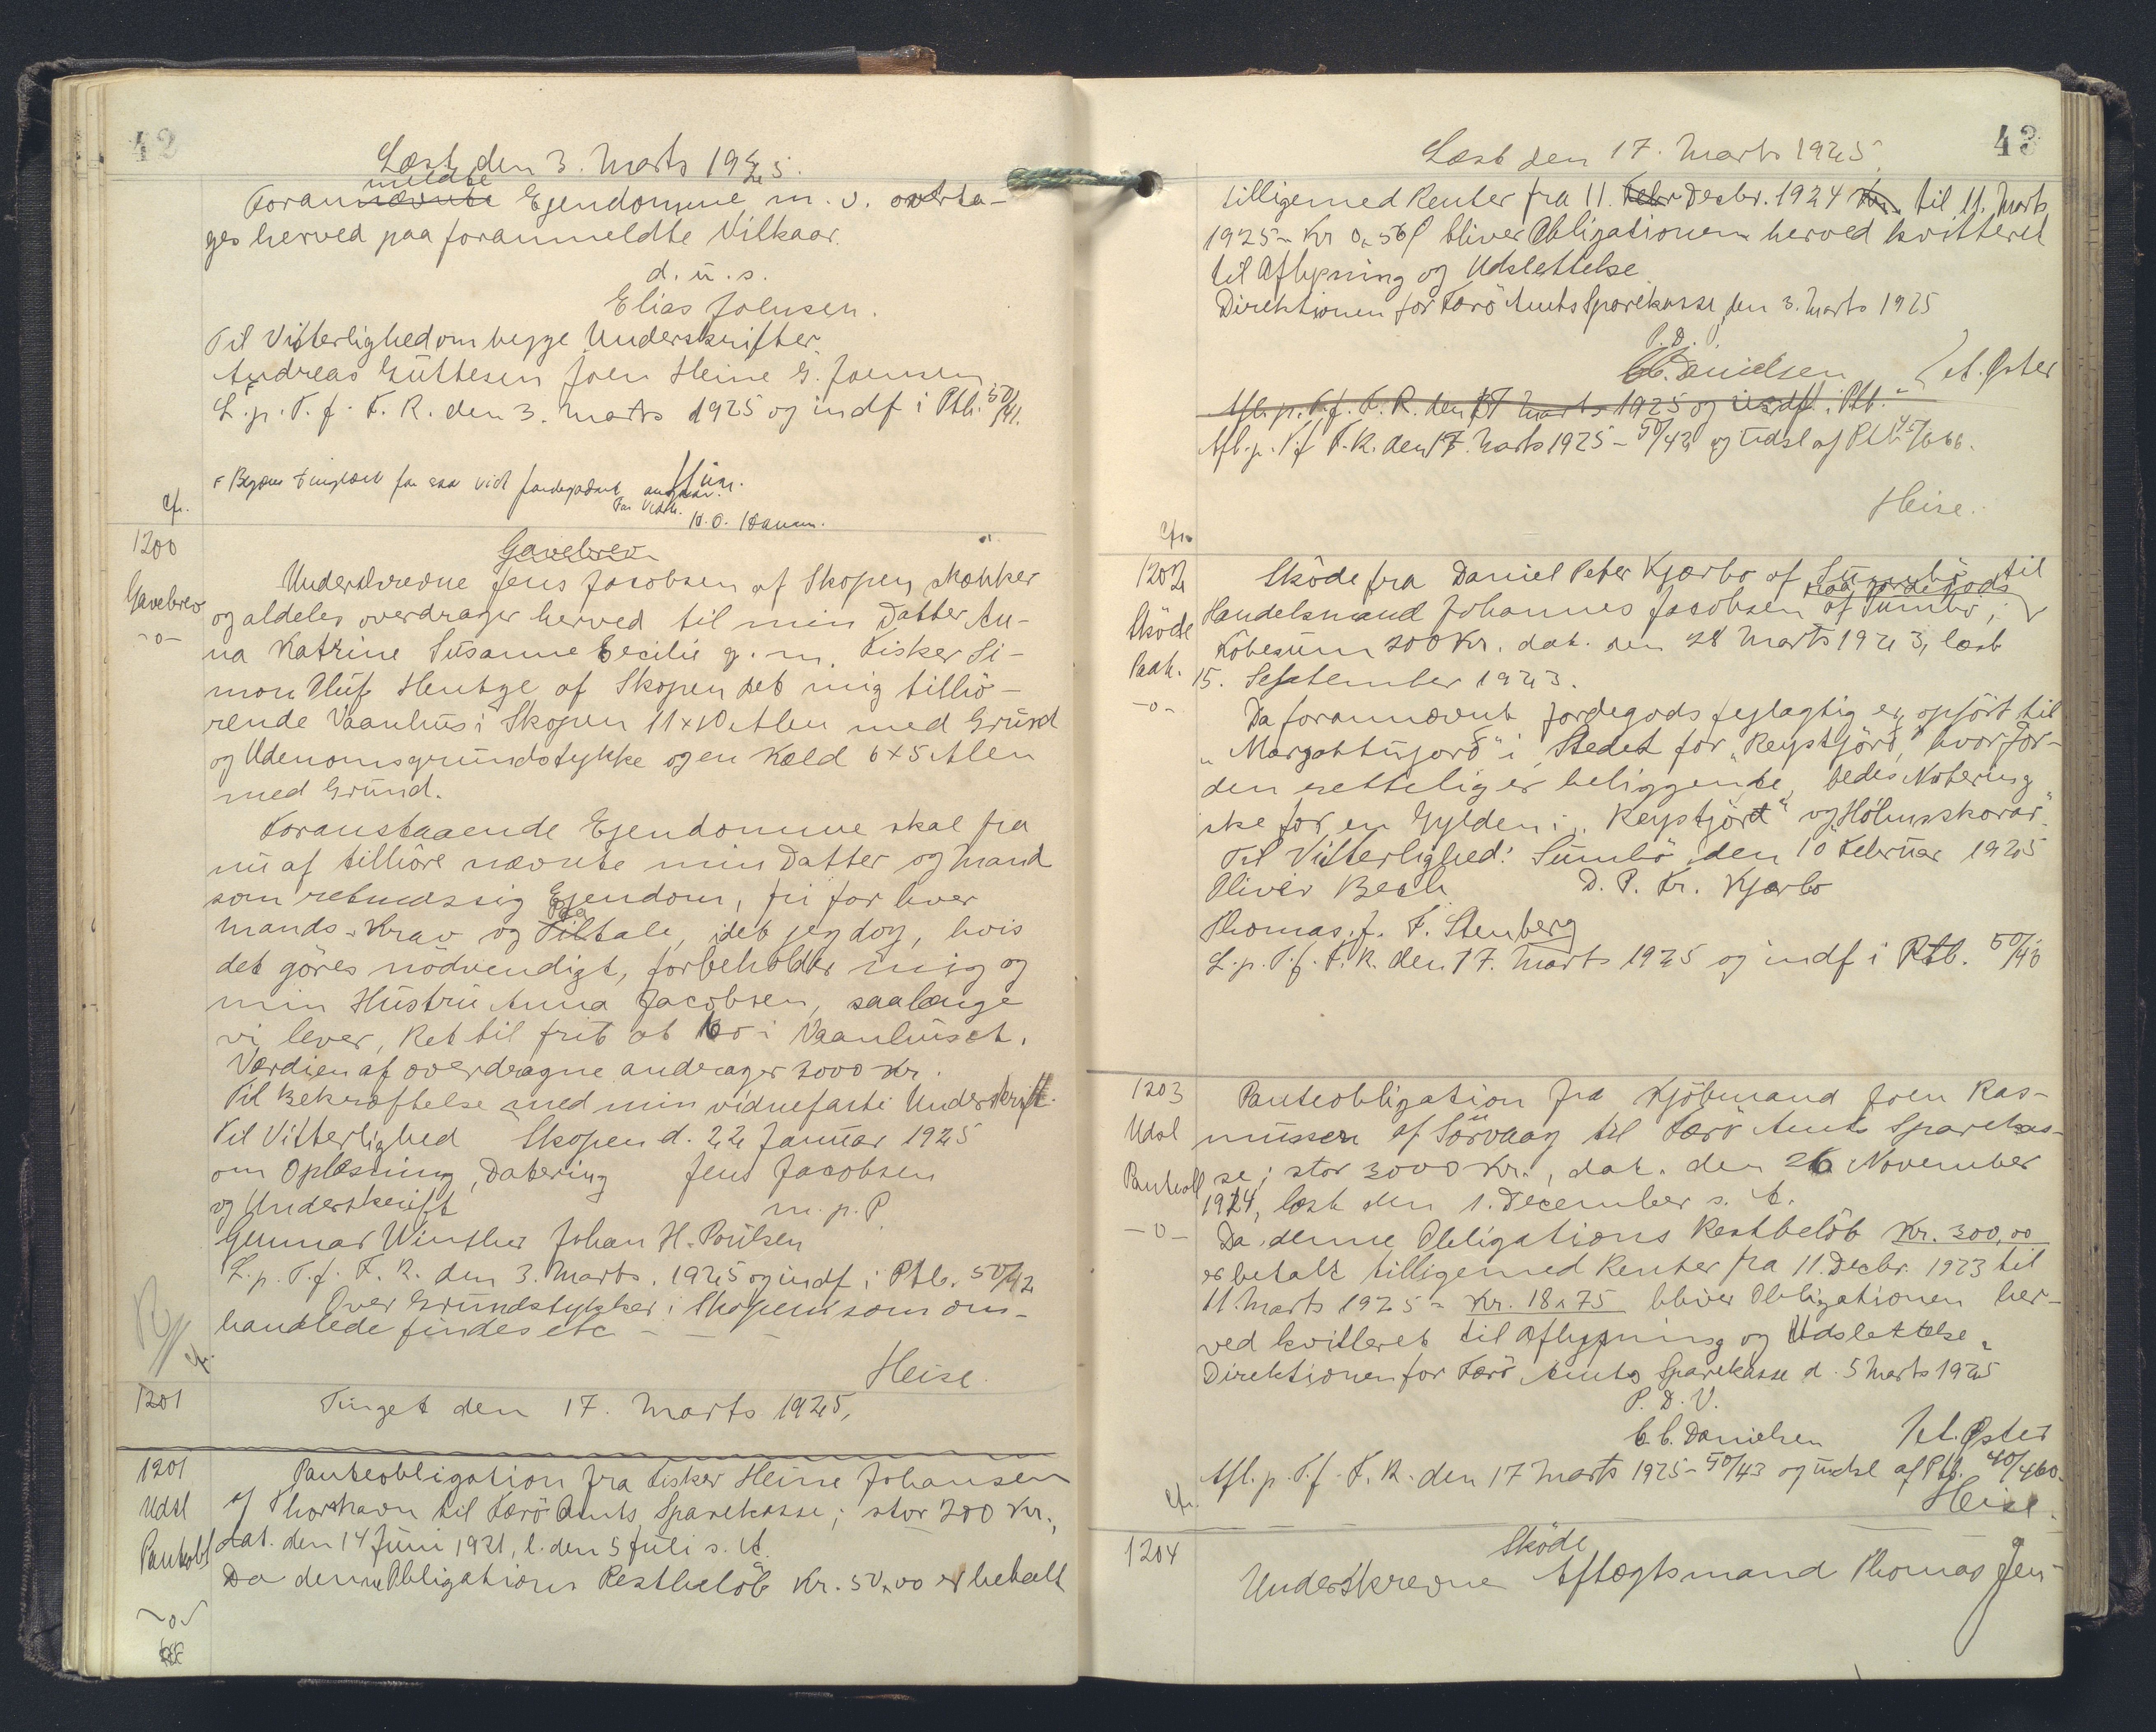 42
Læst den 3. Marts 1925.
meldte
Forannævnte Ejendomme m. v. overta-
ges herved paa foranmeldte Vilkaar.
d. u. s.
Elias Joensen.
Til Vitterlighed om begge Underskrifter
Andreas Guttesen Joen Heine G. Joensen
L. p. T. f. F. R. den 3. Marts 1925 og indf i Ptb. 50/41.
Begæres tinglæst for saa vidt Jordegodset angaar.
cfr.
1200
Gavebrev
-o-
Gavebrev
Underskrevne Jens Jacobsen af Skopen skænker
og aldeles overdrager herved til min Datter An-
na Katrine Susanne Cecilie g. m. Fisker Si-
mon Oluf Hentze af Skopen det mig tilhö-
rende Vaanhus i Skopen 11x10 Alen med Grund
og Udenomsgrundstykke og en Kæld 6x5 Alen
med Grund.
Foranstaaende Ejendomme skal fra
nu af tilhöre nævnte min Datter og Mand
som retmæssig Ejendom, fri for hver
Mands Krav og Tiltale, idet jeg dog, hvis
Paa
det göres nödvendigt, forbeholder mig og
min Hustru Anna Jacobsen, saalænge
vi lever, Ret til frit at bo i Vaanhuset.
Værdien af overdragne andrager 3000 Kr.
Til Bekræftelse med min vidnefaste Underskrift.
Til Vitterlighed Skopen d. 22 Januar 1925
om Oplæsning, Datering Jens Jacobsen
og Underskrift m. p. P
Gunnar Winther Johan H. Poulsen
L. p. T. f. F. R. den 3. Marts 1925 og indf i Ptb. 50/42
Over Grundstykker i Skopen som om-
handlede findes etc - - -
cfr.
Heise.
1201
Tinget den 17. Marts 1925,
1201
Udsl
Panteobl
-o-
Panteobligation fra Fisker Heine Johansen
af Thorshavn til Færö Amts Sparekasse; stor 200 Kr.,
dat. den 14 Juni 1921, l. den 5 Juli s. A.
Da denne Obligations Restbelöb Kr. 50,00 er betalt
43
Læst den 17. Marts 1925
tilligemed Renter fra 11. Febr Decbr. 1924 Kr. til 11. Marts
1925 - Kr 0,56 bliver Obligationen herved kvitteret
til Aflysning og Udslettelse.
Direktionen for Færö Amts Sparekasse, den 3. Marts 1925
P. D.
C. C. Danielsen A. Øster
Afl. p. T. f. F. R. den 17 Marts 1925 og indf. i Ptb.
Afl. p. T f F. R. den 17. Marts 1925 - 50/42 og Udsl af Ptb
Heise.
cfr.
1202
Sköde
Paat.
-o-
Sköde fra Daniel Peter Kjærbo af Sumbö til
paa Jordegods
Handelsmand Johannes Jacobsen af Sumbö;
Köbesum 200 Kr. dat. den 28 Marts 1923, læst
15. September 1923.
Da forannævnt Jordegods fejlagtig er opfört til
"Margattujord" i Stedet for "Reystjörd," hvor Jor-
den rettelig er beliggende, bedes Notering
ske for en Gylden i "Reystjörd" og "Hölmsskorar".
Til Vitterlighed: Sumbö, den 10 Februar 1925
Oliver Bech D. P. Kr. Kjærbo
Thomas J. F. Stenberg
L. p. T. f. F. R. den 17. Marts 1925 og indf i Ptb. 50/43
1203
Udsl
Panteobl
-o-
Panteobligation fra Kjöbmand Joen Ras-
mussen af Sörvaag til Færö Amts Sparekas-
se; stor 3000 Kr., dat. den 26 November
1914, læst den 1. December s. A.
Da denne Obligations Restbelöb Kr. 300,00
er betalt tilligemed Renter fra 11. Decbr. 1923 til
11. Marts 1925 = Kr. 18,75 bliver Obligationen her-
ved kvitteret til Aflysning og Udslettelse.
Direktionen for Færö Amts Sparekasse d. 5 Marts 1925
P. D. V.
C. C. Danielsen A. Øster
Afl. p. T. f. F. R. den 17 Marts 1925 - 50/43 og udsl af Ptb. 40/460.
cfr.
Heise.
1204
Sköde
Underskrevne Aftægtsmand Thomas Jen-